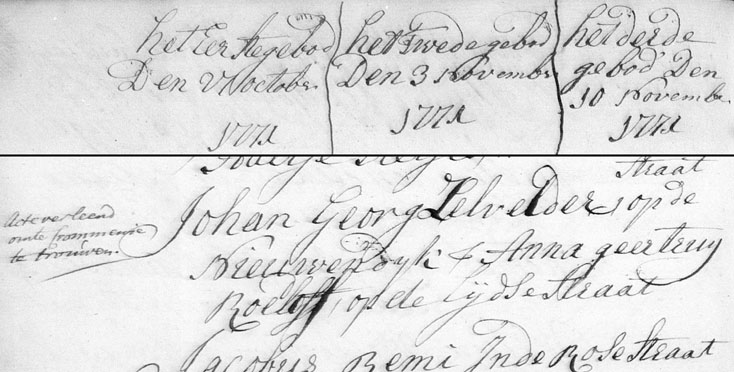 het Eerstegebod
Den 27 october
1771
het twede gebod
Den 3 November
1771
het derde
gebod Den
10 Novembe.
1771
straat
Acte verleend
om te Krommenie
te trouwen.
Johan Georg Zelvelder, op de
Nieuwendyk & Anna geertruy
op de Lydse straat
Jacobus Remi Inde Rosestraat